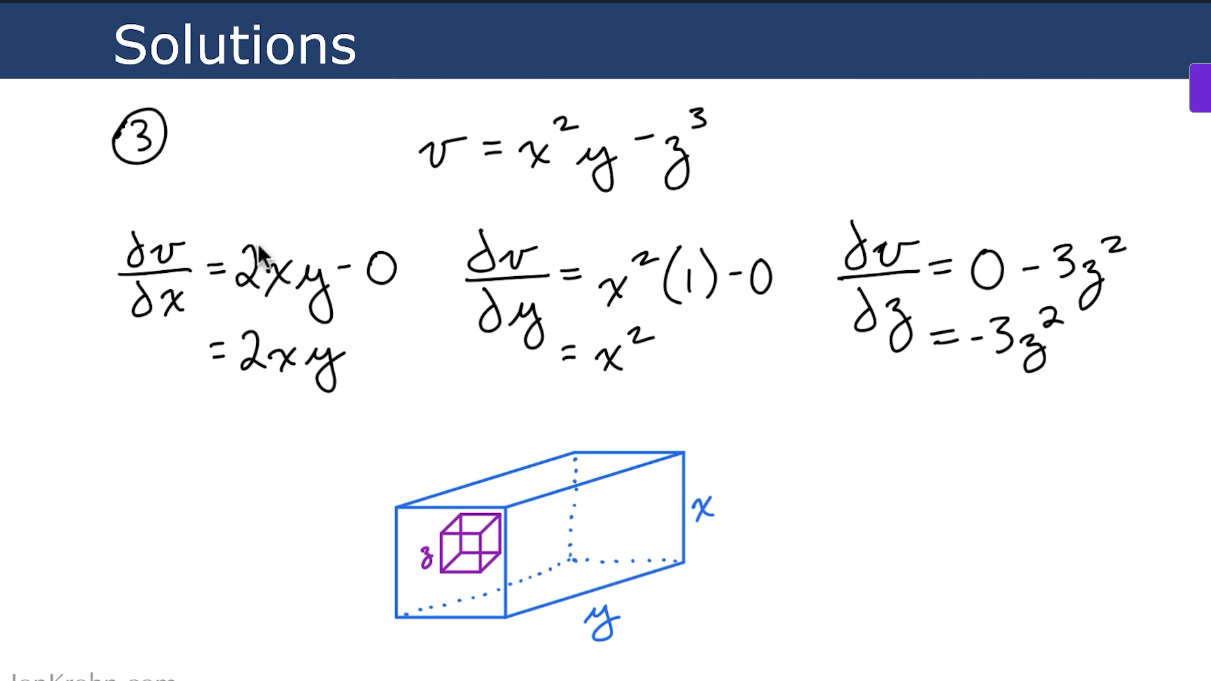 Solutions
③
v = x²y - z³
∂v/∂x = 2xy - 0
= 2xy
∂v/∂y = x²(1) - 0
= x²
∂v/∂z = 0 - 3z²
= -3z²
z
x
y